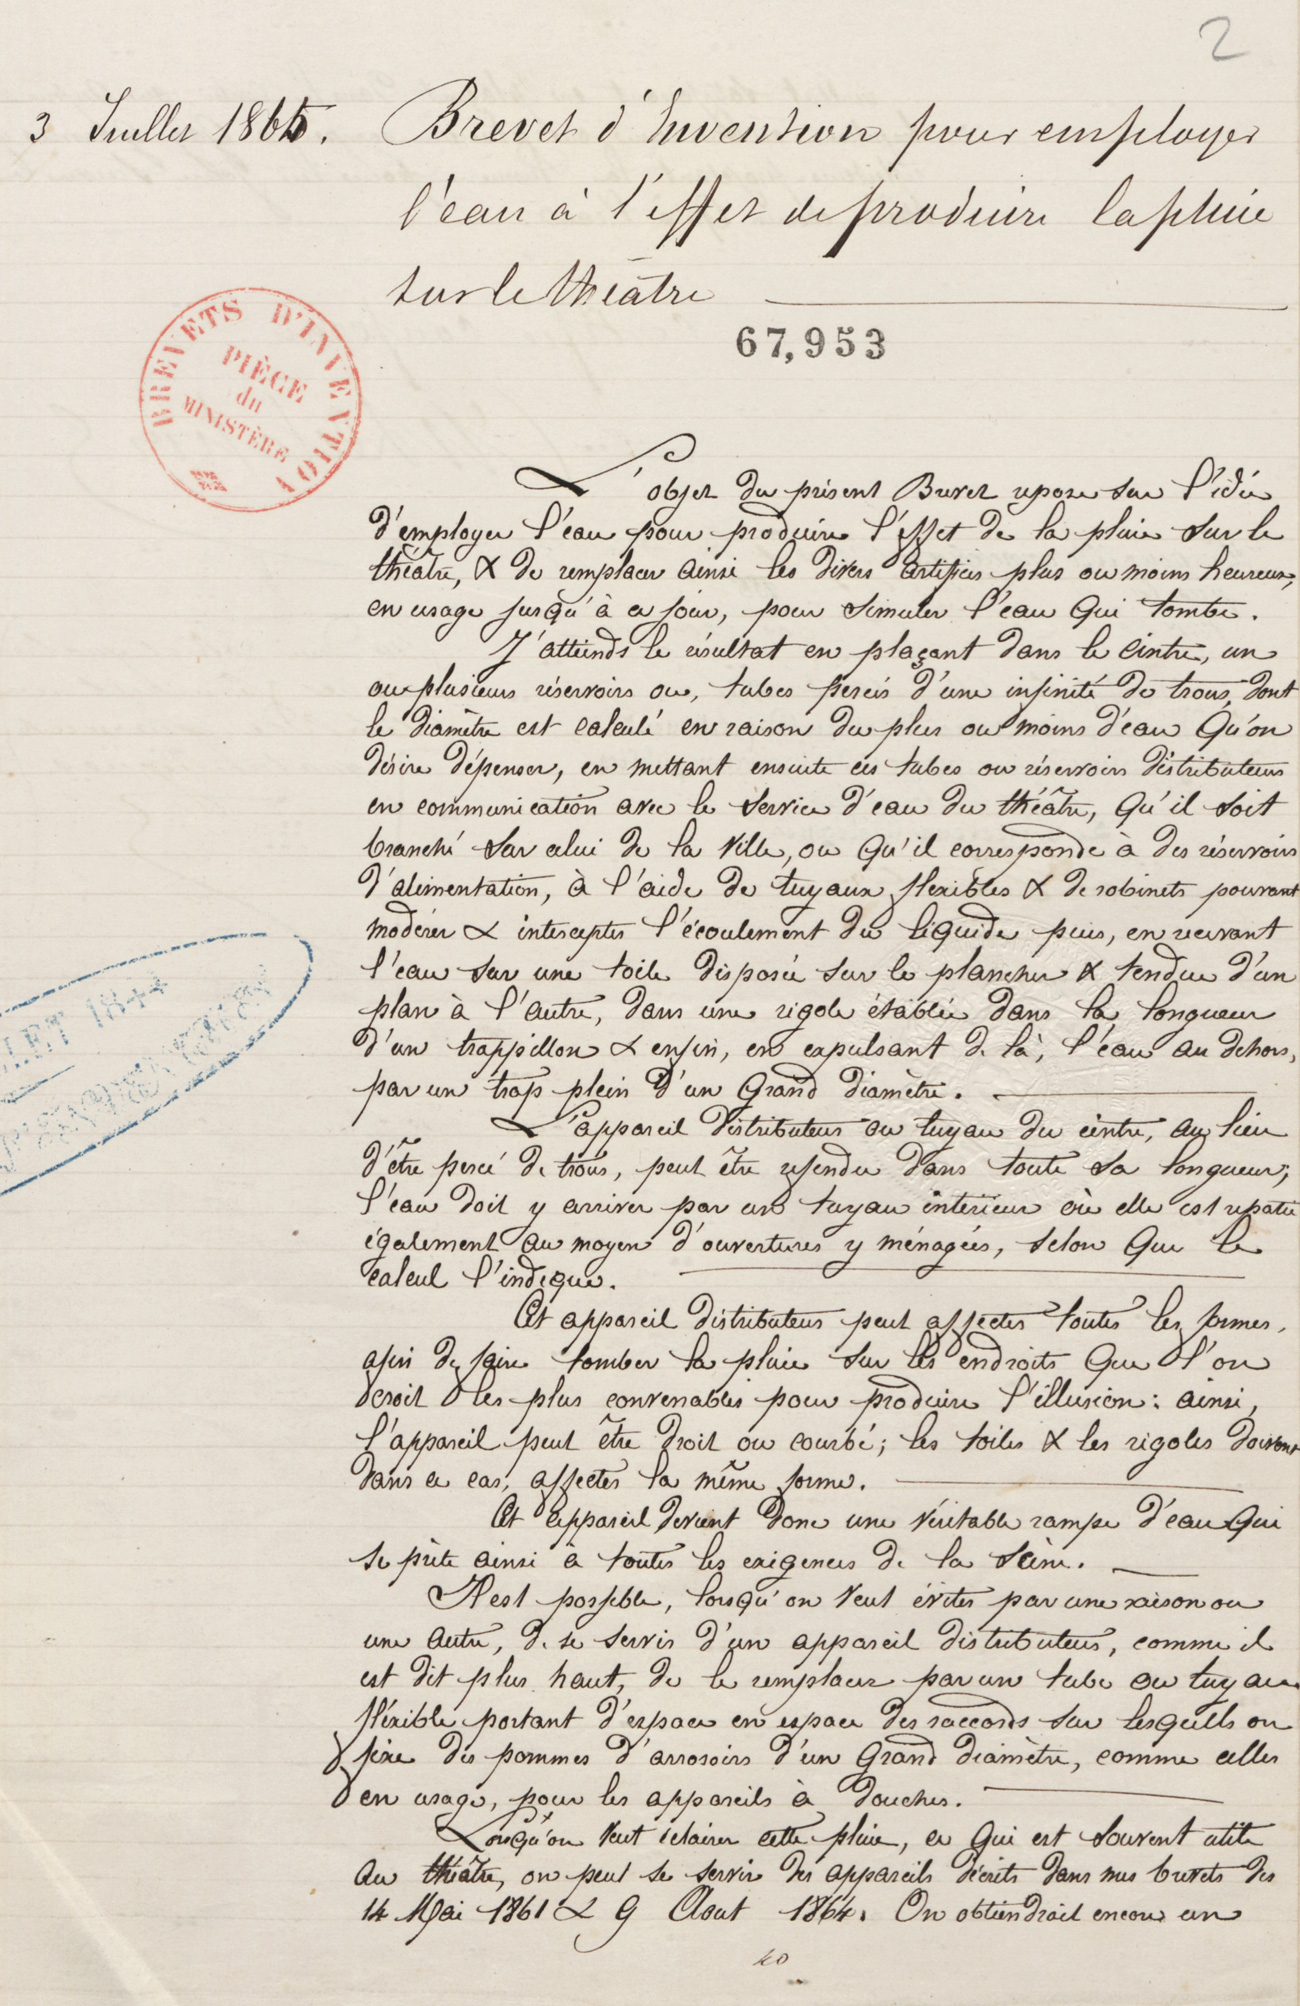 2
3 Juillet 1865. Brevet d'Invention pour employer
l'eau à l'effet de produire la pluie
sur le théâtre
67,953
BREVETS D'INVENTION
PIÈCE
du
MINISTÈRE
L'objet du présent Brevet repose sur l'idée
d'employer l'eau pour produire l'effet de la pluie sur le
théâtre, & de remplacer ainsi les divers artifices plus ou moins heureux,
en usage jusqu'à ce jour, pour simuler l'eau qui tombe.
J'atteinds le résultat en plaçant dans le cintre, un
ou plusieurs réservoirs ou, tubes percés d'une infinité de trous, dont
le diamètre est calculé en raison du plus ou moins d'eau qu'on
désire dépenser, en mettant ensuite ces tubes ou réservoirs distributeurs
en communication avec le service d'eau du théâtre, qu'il soit
branché sur celui de la ville, ou qu'il corresponde à des réservoirs
d'alimentation, à l'aide de tuyaux flexibles & de robinets pouvant
modérer & intercepter l'écoulement du liquide puis, en recevant
l'eau sur une toile disposée sur le plancher & tendue d'un
plan à l'autre, dans une rigole établie dans la longueur
d'un trappillon & enfin, en expulsant de là, l'eau au dehors,
par un trop plein d'un grand diamètre.
LET 1844
L'appareil distributeur ou tuyau du cintre, au lieu
d'être percé de trous, peut être refendu dans toute sa longueur;
l'eau doit y arriver par un tuyau intérieur où elle est répartie
également au moyen d'ouvertures y ménagées, selon que le
calcul l'indique.
Cet appareil distributeur peut affecter toutes les formes,
afin de faire tomber la pluie sur les endroits que l'on
croit les plus convenables pour produire l'illusion: ainsi,
l'appareil peut être droit ou courbé; les toiles & les rigoles doivent
dans ce cas, affecter la même forme.
Cet appareil devient donc une véritable rampe d'eau qui
se prête ainsi à toutes les exigences de la scène.
Il est possible, lorsqu'on veut éviter par une raison ou
une autre, de se servir d'un appareil distributeur, comme il
est dit plus haut, de le remplacer par un tube ou tuyau
flexible portant d'espace en espace des raccords sur lesquels on
fixe des pommes d'arrosoirs d'un grand diamètre, comme celles
en usage, pour les appareils à douches.
Lorsqu'on veut éclairer cette pluie, ce qui est souvent utile
au théâtre, on peut se servir des appareils décrits dans mes brevets des
14 Mai 1861 & 9 Août 1864. On obtiendrait encore un